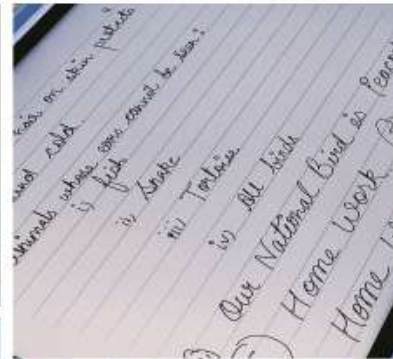 hair on skin protects
and cold.
animals whose ears cannot be seen:
i) fish
ii) Snake
iii) Tortoise
iv) All birds
Our National Bird is Peacoc
Home Work
Home